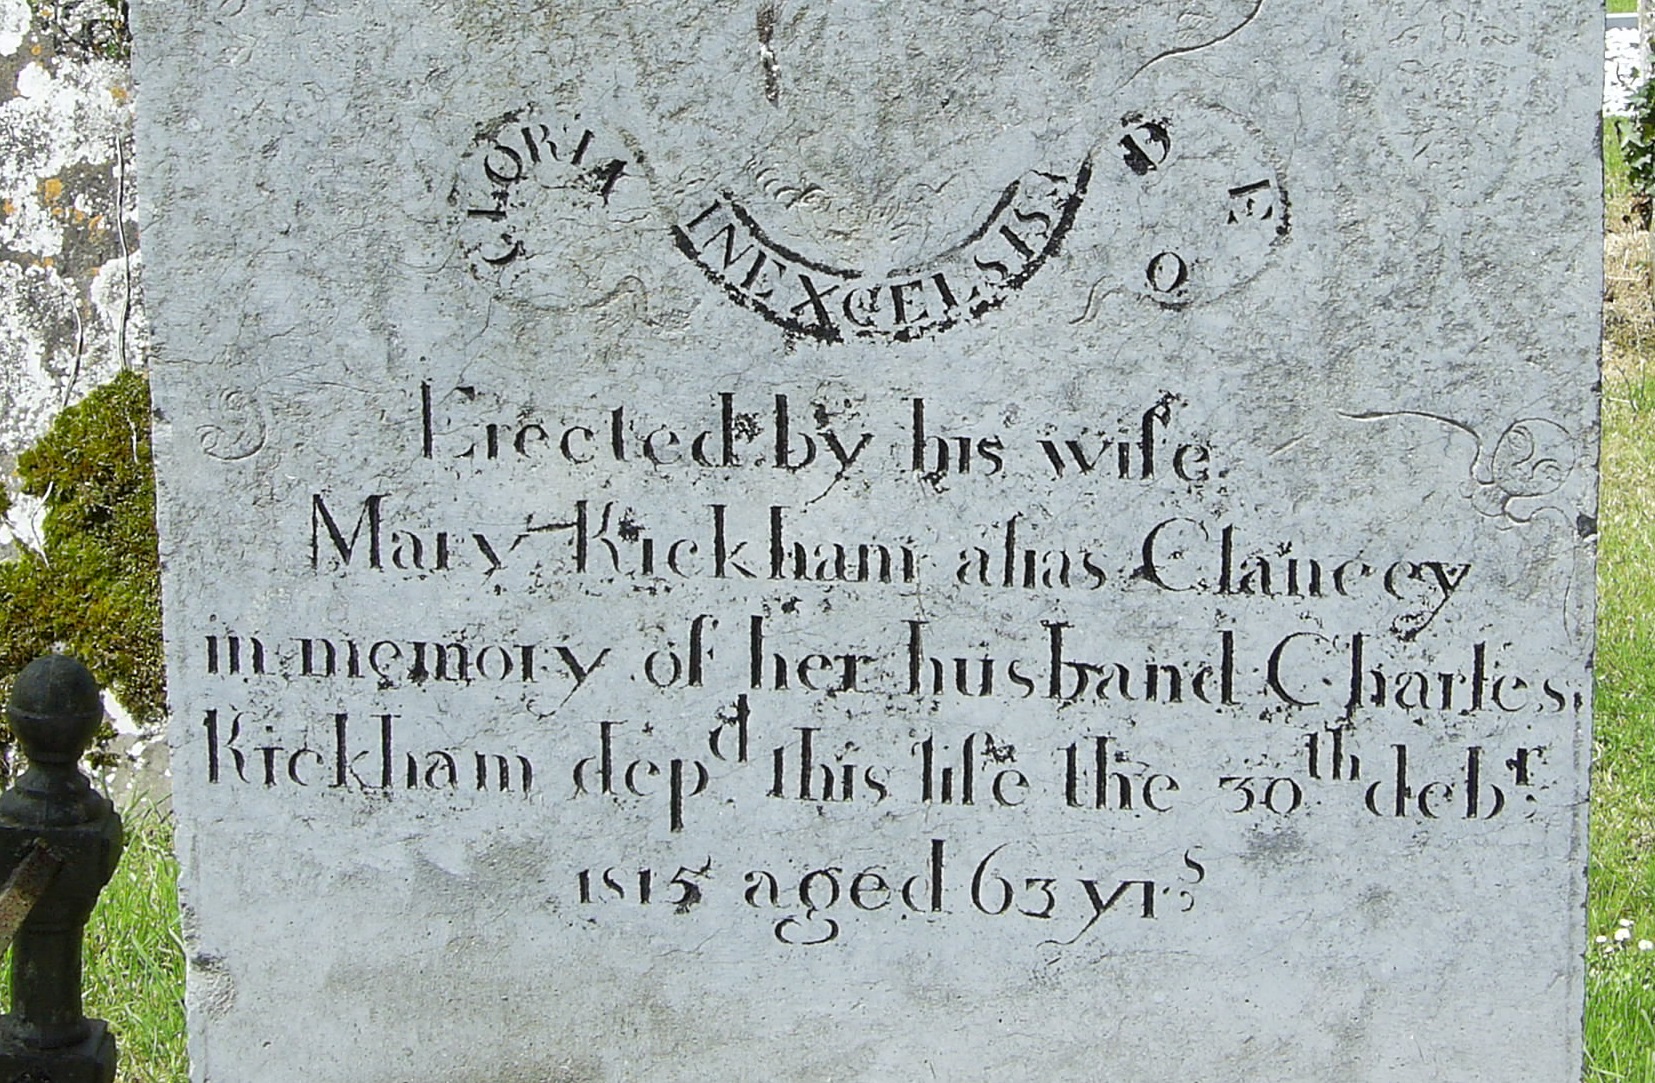 GLORIA INEXCELSIS DEO
Erected by his wife
Mary Kickham alias Clancey
in memory of her husband Charles
Kickham depd this life the 30th debr
1815 aged 63 yrs